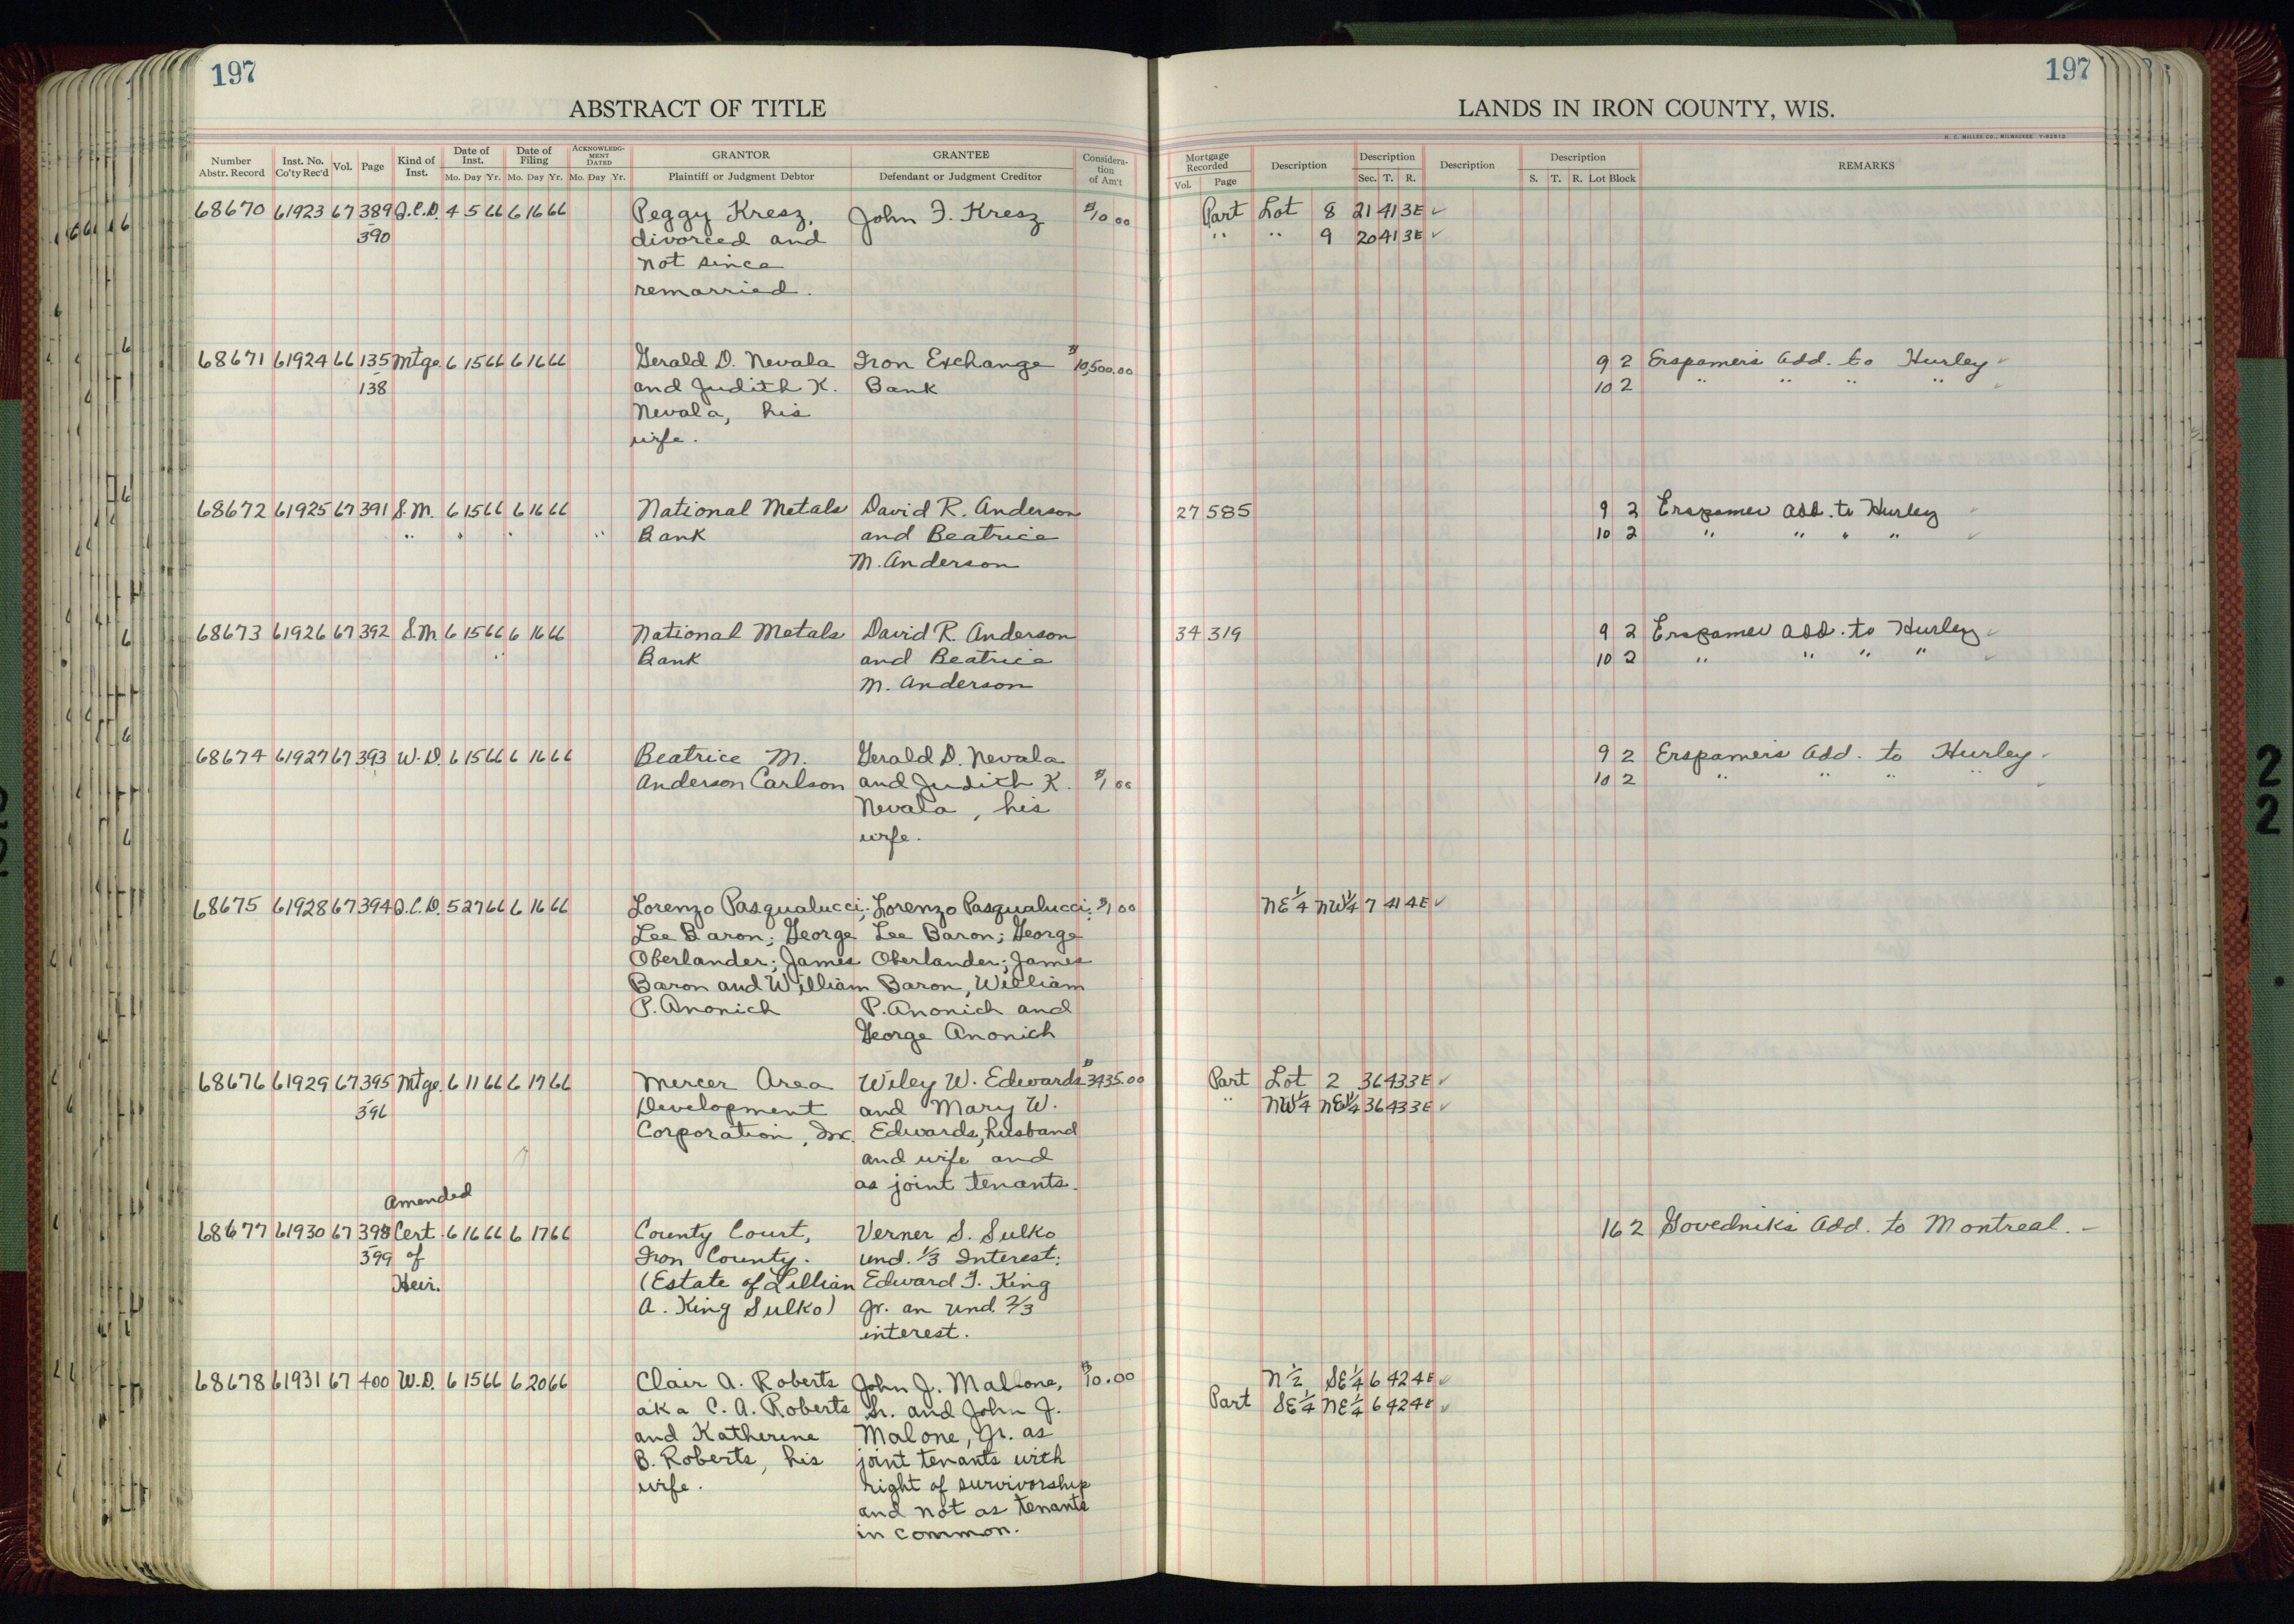 197
197
ABSTRACT OF TITLE
LANDS IN IRON COUNTY, WIS.
H. C. MILLER CO., MILWAUKEE
Number Abstr. Record
Inst. No. Co'ty Rec'd
Vol.
Page
Kind of Inst.
Date of Inst.
Mo. Day Yr.
Date of Filing
Mo. Day Yr.
ACKNOWLEDGMENT DATED
Mo. Day Yr.
GRANTOR
Plaintiff or Judgment Debtor
GRANTEE
Defendant or Judgment Creditor
Considera-
tion
of Am't
Mortgage Recorded
Vol. Page
Description
Description
Sec. T. R.
Description
Description
S. T. R. Lot Block
REMARKS
68670 61923 67 389 Q.C.D. 4 5 66 6 16 66 Peggy Kresz, John F. Kresz $10 00 Part Lot 8 21 41 3E ✓
390 divorced and " " 9 20 41 3E ✓
not since
remarried.
68671 61924 66 135 Mtge. 6 15 66 6 16 66 Gerald D. Nevala Iron Exchange $10,500.00 9 2 Erspamer's Add. to Hurley ✓
138 and Judith K. Bank 10 2 " " " " ✓
Nevala, his
wife.
68672 61925 67 391 S.M. 6 15 66 6 16 66 National Metals David R. Anderson 27 585 9 2 Erspamer Add. to Hurley ✓
" " " " Bank and Beatrice 10 2 " " " " ✓
M. Anderson
68673 61926 67 392 S.M. 6 15 66 6 16 66 National Metals David R. Anderson 34 319 9 2 Erspamer Add. to Hurley ✓
Bank and Beatrice 10 2 " " " " ✓
M. Anderson
68674 61927 67 393 W.D. 6 15 66 6 16 66 Beatrice M. Gerald D. Nevala 9 2 Erspamer's Add. to Hurley ✓
Anderson Carlson and Judith K. $1 00 10 2 " " " " ✓
Nevala, his
wife.
68675 61928 67 394 Q.C.D. 5 27 66 6 16 66 Lorenzo Pasqualucci; Lorenzo Pasqualucci; $1 00 NE¼ NW¼ 7 41 4E ✓
Lee Baron; George Lee Baron; George
Oberlander; James Oberlander; James
Baron and William Baron, William
P. Anonich P. Anonich and
George Anonich
68676 61929 67 395 Mtge. 6 11 66 6 17 66 Mercer Area Wiley W. Edwards $3435.00 Part Lot 2 36 43 3E ✓
396 Development and Mary W. " NW¼ NE¼ 36 43 3E ✓
Corporation, Inc. Edwards, husband
and wife and
as joint tenants.
Amended
68677 61930 67 398 Cert. 6 16 66 6 17 66 County Court, Verner S. Sulko 16 2 Govednik's Add. to Montreal. –
399 of Iron County. und. 1/3 Interest:
Heir. (Estate of Lillian Edward F. King
A. King Sulko) Jr. an und 2/3
interest.
68678 61931 67 400 W.D. 6 15 66 6 20 66 Clair A. Roberts John J. Malone, $10.00 N½ SE¼ 6 42 4E ✓
aka C. A. Roberts Sr. and John J. Part SE¼ NE¼ 6 42 4E ✓
and Katherine Malone, Jr. as
B. Roberts, his joint tenants with
wife. right of survivorship
and not as tenants
in common.
2
2